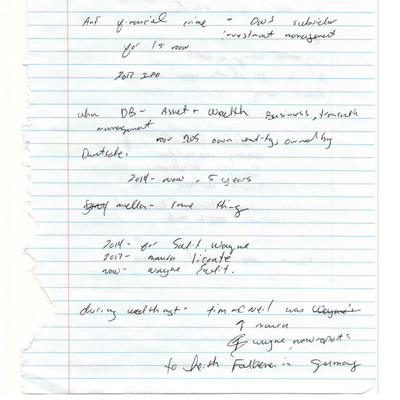 Anti financial crime - DWS subsidiary
investment management
for 1.5 now
2017 IPO
when DB - Asset + Wealth Business,
management
now own entity, owned by
Deutsche.
2014 - now - 5 years
mellon - same thing
2014 - for Salit, Wayne
2017 - maura licente
now - wayne Salit.
during wealth mgt - tim mcNeil was Wayne's
↑ maura
wayne, now reports
to in Germany